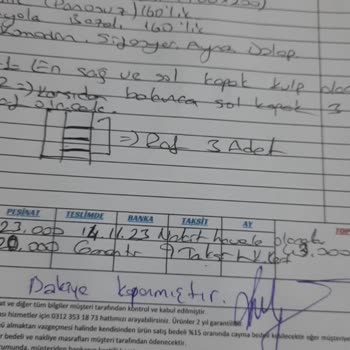 (Panosuz) 160'lık
Baza, 160'lik
Komodin, Şifonyer, Ayna Dolap.
1- En sağ ve sol kapak kulp
2 => Karşıda bakınca sol kapak 3
=> Raf 3 Adet
PEŞİNAT TESLİMDE BANKA TAKSİT AY TOP
23.000 14.11.23 Nakit havale olarak
20.000 Garanti 9 Taksit K.Kart
Bakiye kapanmıştır.
at ve diğer tüm bilgiler müşteri tarafından kontrol ve kabul edilmiştir.
sı hizmetler için 0312 353 18 73 hattımızı arayabilirsiniz. Ürünler 2 yıl garantilidir
ü almaktan vazgeçmesi halinde kendisinden ürün satış bedeli %15 oranında cayma bedeli kesilecektir eğer müşteriler
r bedeli ve nakliye masrafları müşteri tarafından ödenecektir.